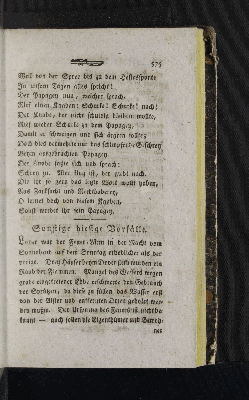 575
Weil von der Spree bis zu dem Hellesponte
In diesen Tagen alles spricht!
Der Papagey nun, welcher sprach,
Rief einen Knaben! Schurke! Schurke! nach!
Der Knabe, der nicht schuldig bleiben wollte,
Rief wieder Schurke zu dem Papagey,
Damit er schweigen und sich ärgern sollte;
Noch dies vermehrte nur das schimpfende Geschrey
Beym aufgebrachten Papagey.
Der Knabe legte sich und sprach:
Schrey zu. Wer klug ist, der giebt nach.
Die ihr so gern das letzte Wort wollt haben,
Aus Zanksucht und Rechthaberey,
O lernet doch von diesem Knaben,
Sonst werdet ihr sein Papagey.
Sonstige hiesige Vorfälle.
Leider war der Feuer-Lärm in der Nacht vom
Sonnabend auf den Sonntag erheblicher als der
vorige. Drey Häuser beym Deverhofe wurden ein
Raub der Flammen. Mangel des Wassers wegen
grade eingetretener Ebbe erschwerte den Gebrauch
der Sprützen, da diese zu füllen das Wasser erst
von der Alster und entfernten Orten geholet wer-
den mußte. Der Ursprung des Feuers ist nicht be-
kannt — auch sollen die Eigenthümer und Bewoh-
ner